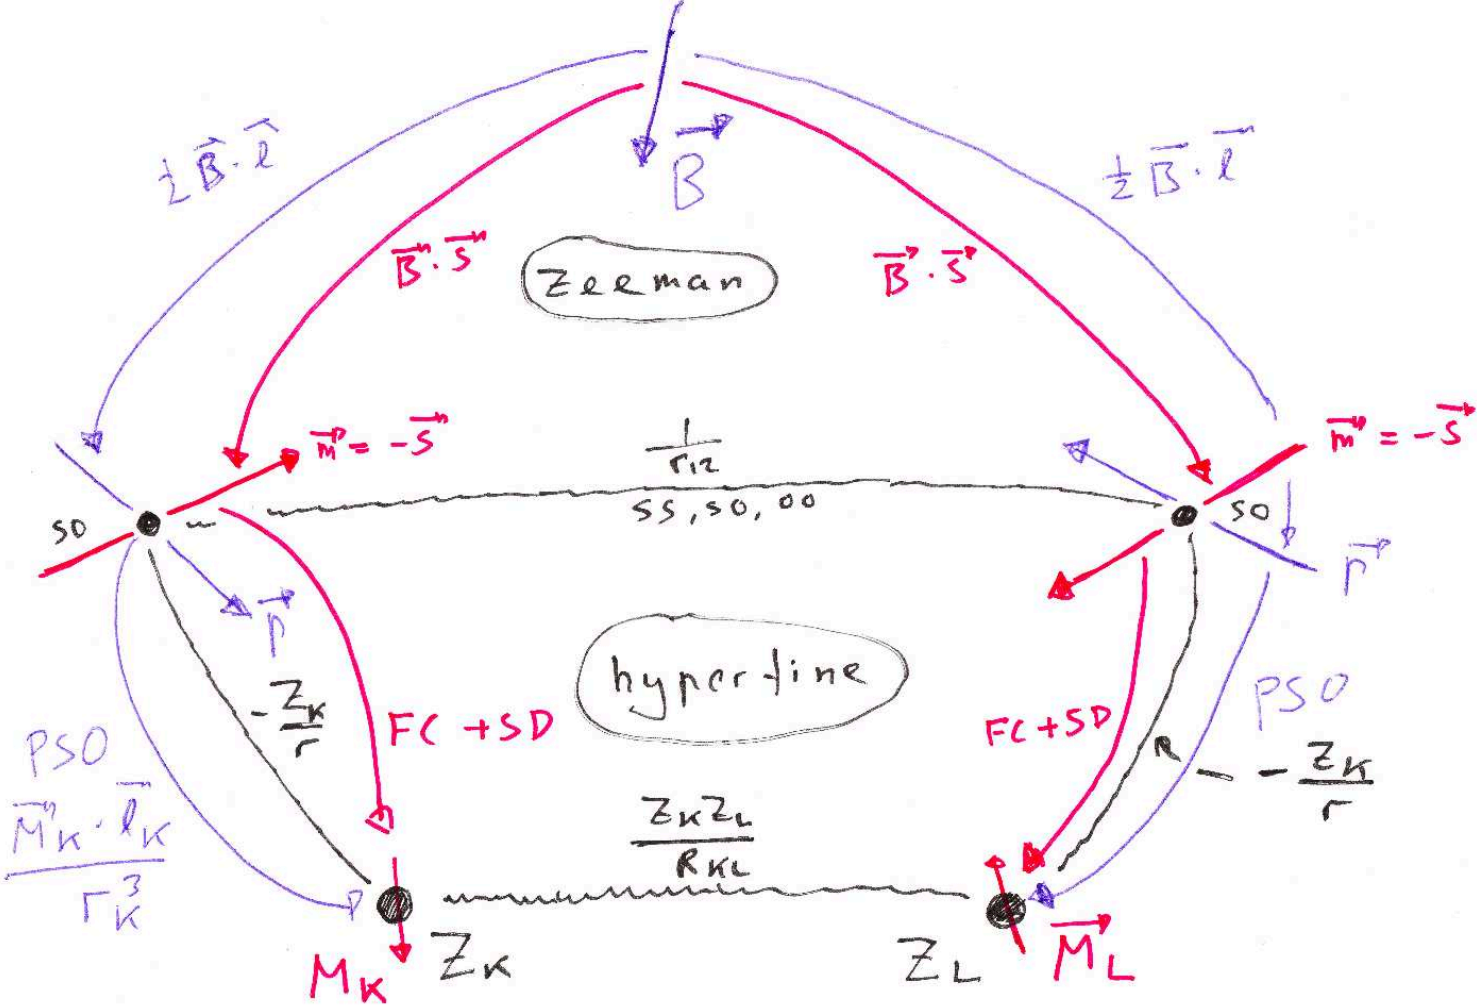 B⃗
½ B⃗·l⃗
½ B⃗·l⃗
B⃗·s⃗
zeeman
B⃗·s⃗
m⃗ = -s⃗
1/r₁₂
m⃗ = -s⃗
SO
SS, SO, OO
SO
p⃗
p⃗
hyperfine
-Z_K/r
FC + SD
FC+SD
PSO
PSO
M⃗_K·l⃗_K/r_K³
Z_K Z_L/R_KL
- Z_K/r
M_K
Z_K
Z_L
M⃗_L